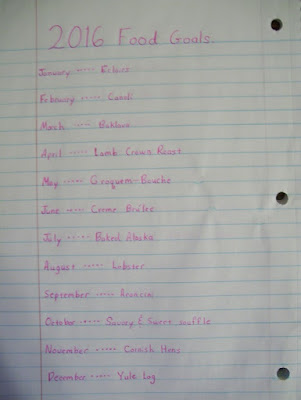 2016 Food Goals.
January ..... Eclairs
Febuary ..... Canoli
March ..... Baklava
April ..... Lamb Crown Roast
May ..... Croquem-Bouche
June ..... Creme Brulee
July ..... Baked Alaska
August ..... Lobster
September ..... Arancini
October ..... Savory & Sweet souffle
November ..... Cornish Hens
December ..... Yule Log